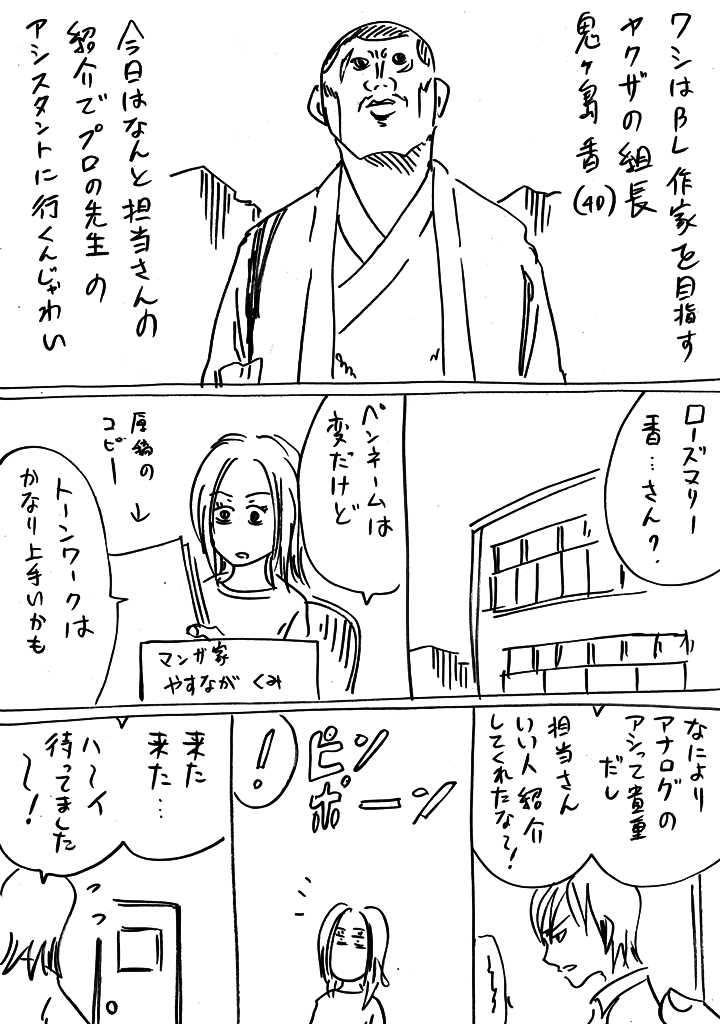 ワシはBL作家を目指す
ヤクザの組長
鬼ヶ島 香(40)
今日はなんと担当さんの
紹介でプロの先生の
アシスタントに行くんじゃわい
ローズマリー
香…さん?
ペンネームは
変だけど
原稿の
コピー
トーンワークは
かなり上手いかも
マンガ家
やすなが くみ
なにより
アナログの
アシって貴重
だし
担当さん
いい人紹介
してくれたな〜!
ピン
ポーン
!
来た
来た…
ハーイ
待ってました
〜!